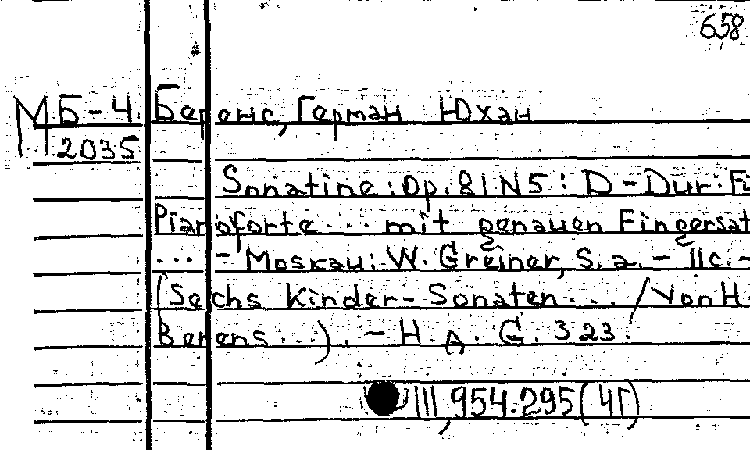 658
МБ-4. Беренс, Герман Юхан
2035
Sonatine: Op. 81 N5: D-Dur: Fü
Pianoforte ... mit genauen Fingersat
... - Moskau: W. Greiner, S. a. - 11c. -
(Sechs Kinder-Sonaten ... / Von H.
Berens ...). - H. A. G. 323.
III, 954.295 (41)